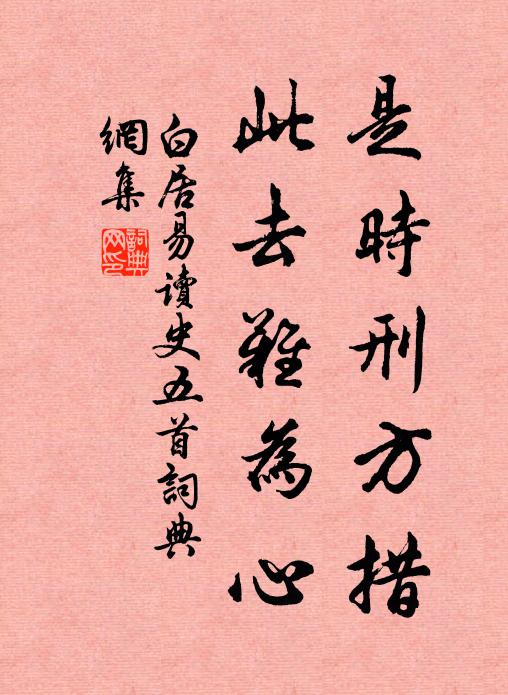 是時刑方措
此去難為心
白居易讀史五首詞典
網集
詞典網印